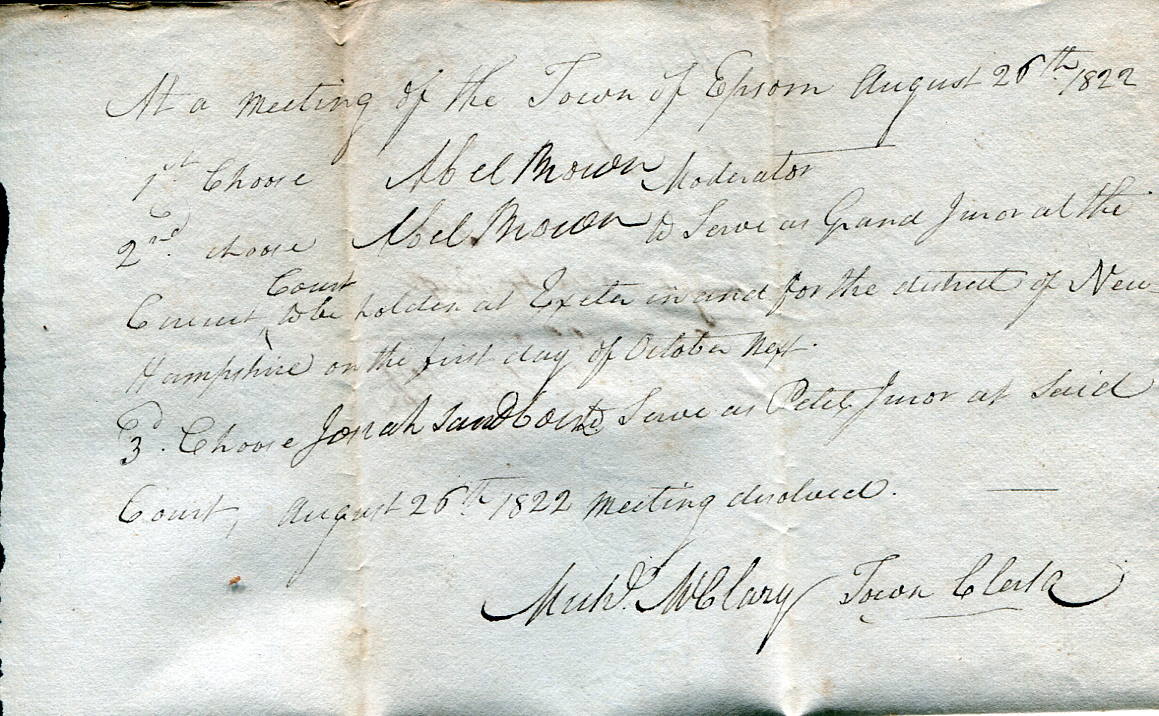 At a meeting of the Town of Epsom August 26th 1822
1st Choose Abel Brown Moderator
2nd choose Abel Brown to Serve as Grand Juror at the
Court
Circuit ‸ to be holden at Exeter in and for the district of New-
Hampshire on the first day of October Next.
3d. Choose Josiah Sandborn to Serve as Petit Juror at Said
Court, August 26th 1822 Meeting disolved.
Michl. McClary Town Clerk